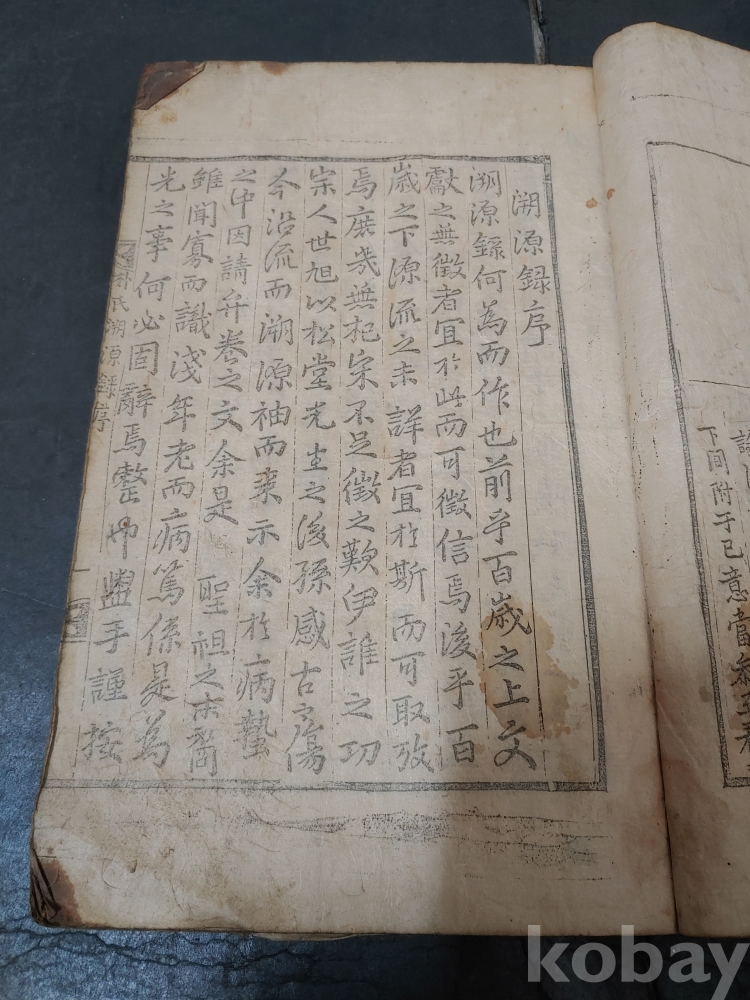 溯源録序
溯源録何為而作也前乎百歲之上文
獻之無徵者宜於此而可徵信焉後乎百
歲之下源流之未詳者宜於斯而可取攷
焉庶幾無杞宋不足徵之歎伊誰之功
宗人世旭以松堂先生之後孫感古之傷
今沿流而溯源袖而來示余於病蟄
之中因請弁卷之文余是 聖祖之末裔
雖聞寡而識淺年老而病篤係是為
先之事何必固辭焉整巾盥手謹按
朴氏溯源録序
下間附于已意當
kobay